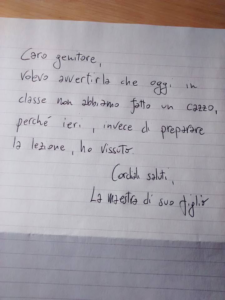 Caro genitore,
volevo avvertirla che oggi in
classe non abbiamo fatto un cazzo,
perché ieri, invece di preparare
la lezione, ho vissuto.
Cordiali saluti,
La maestra di suo figlio